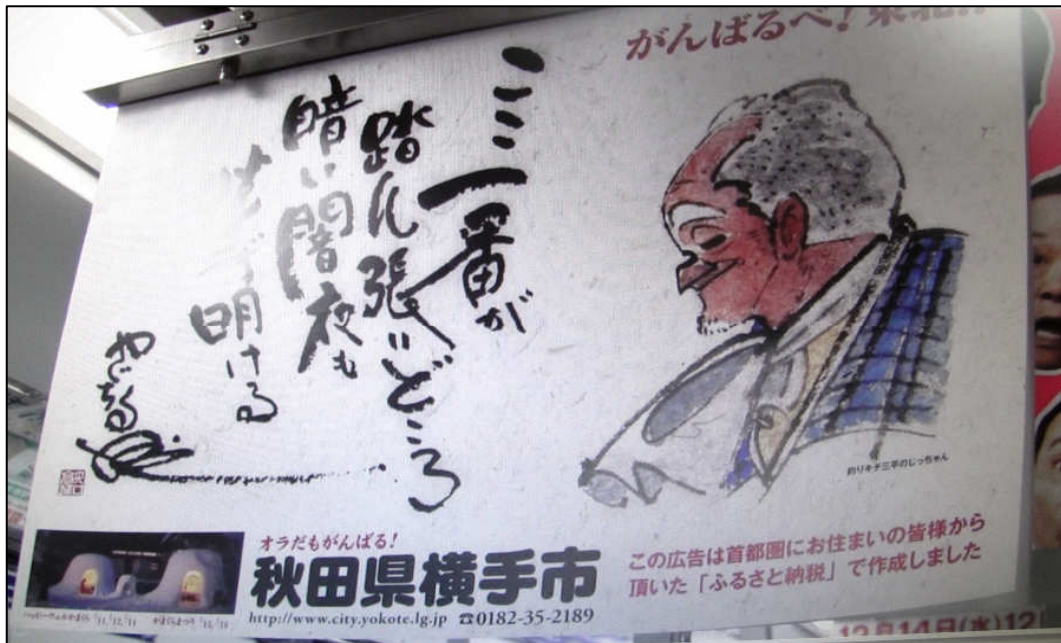 がんばるべ！東北
ここ一番が
踏ん張りどころ
暗い闇夜も
必ず明ける
釣りキチ三平のじっちゃん
オラだもがんばる！
秋田県横手市
http://www.city.yokote.lg.jp ☎0182-35-2189
この広告は首都圏にお住まいの皆様から
頂いた「ふるさと納税」で作成しました
12月14日(水)12